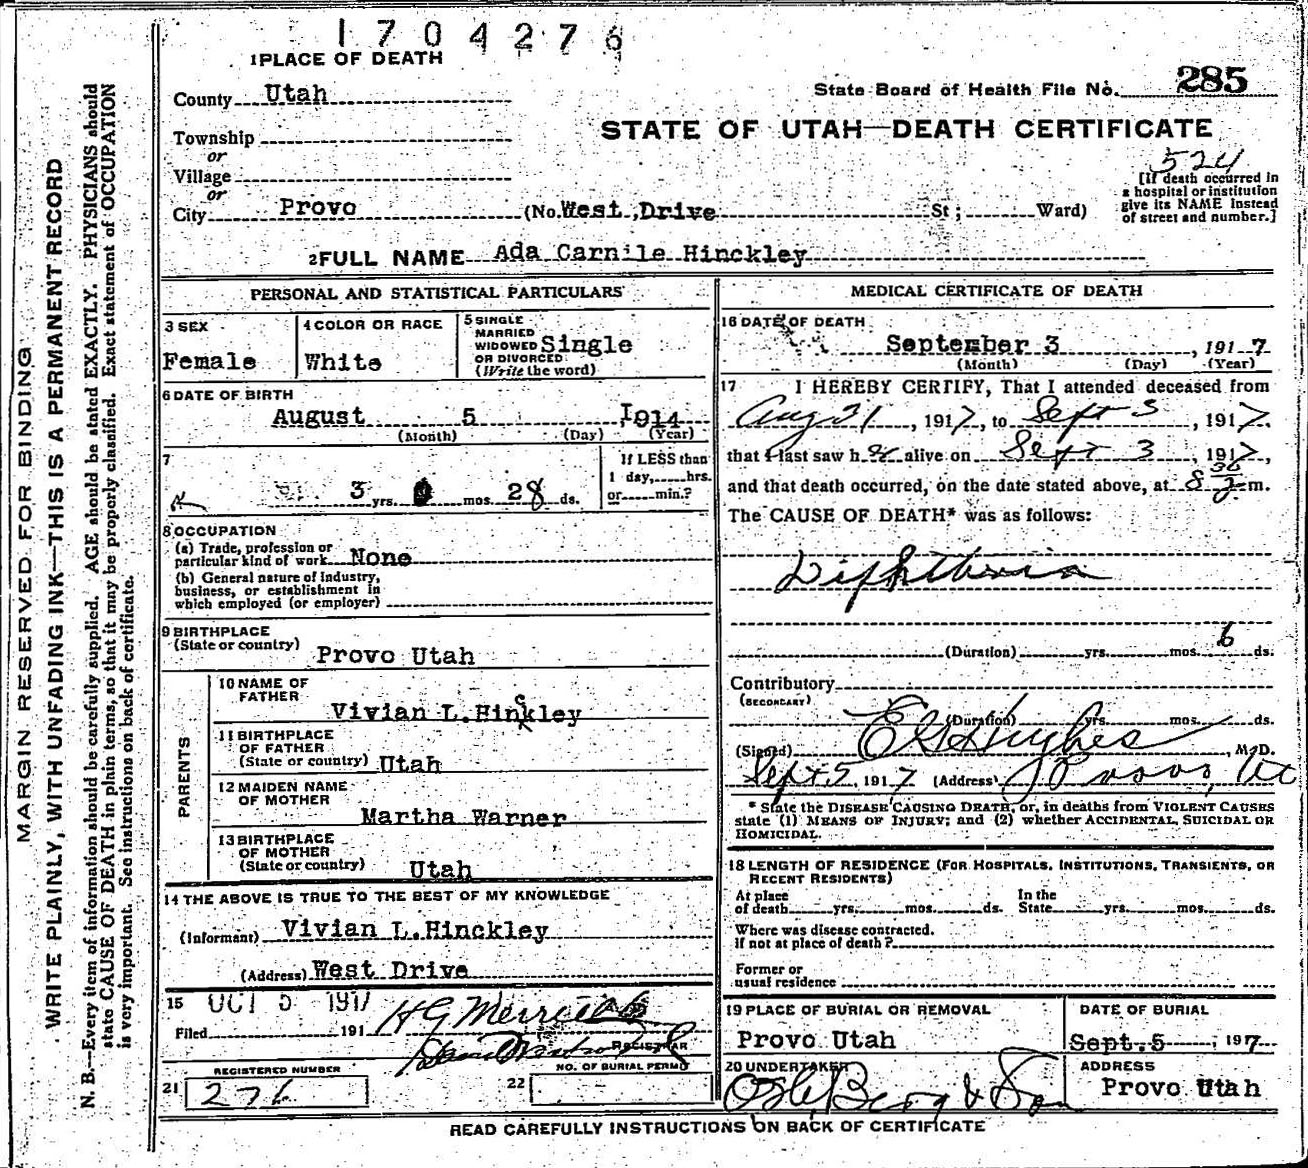 1704276
1 PLACE OF DEATH
County Utah
State Board of Health File No. 285
STATE OF UTAH—DEATH CERTIFICATE
Township
or
Village
or
524
[If death occurred in
a hospital or institution
give its NAME instead
of street and number.]
City Provo (No. West Drive St; Ward)
2 FULL NAME Ada Carnile Hinckley
PERSONAL AND STATISTICAL PARTICULARS
3 SEX
Female
4 COLOR OR RACE
White
5 SINGLE
MARRIED
WIDOWED Single
OR DIVORCED
(Write the word)
6 DATE OF BIRTH
August 5 1914
(Month) (Day) (Year)
7
3 yrs. 0 mos. 28 ds.
If LESS than
1 day, hrs.
or min.?
8 OCCUPATION
(a) Trade, profession or
particular kind of work None
(b) General nature of industry,
business, or establishment in
which employed (or employer)
9 BIRTHPLACE
(State or country)
Provo Utah
PARENTS
10 NAME OF
FATHER
Vivian L.Hinckley
11 BIRTHPLACE
OF FATHER
(State or country) Utah
12 MAIDEN NAME
OF MOTHER
Martha Warner
13 BIRTHPLACE
OF MOTHER
(State or country)
Utah
14 THE ABOVE IS TRUE TO THE BEST OF MY KNOWLEDGE
(Informant) Vivian L.Hinckley
(Address) West Drive
15 OCT 5 1917
Filed 191 H G Merrill
REGISTRAR
REGISTERED NUMBER
21 276
NO. OF BURIAL PERMIT
22
MEDICAL CERTIFICATE OF DEATH
16 DATE OF DEATH
September 3, 1917
(Month) (Day) (Year)
17 I HEREBY CERTIFY, That I attended deceased from
Aug 31, 1917, to Sept 3, 1917.
that I last saw h er alive on Sept 3, 1917,
and that death occurred, on the date stated above, at 8 30 m.
The CAUSE OF DEATH* was as follows:
Diphtheria
(Duration) yrs. mos. 6 ds.
Contributory
(SECONDARY)
(Duration) yrs. mos. ds.
(Signed) E G Hughes, M.D.
Sept 5, 1917 (Address) Provo, Ut
* State the DISEASE CAUSING DEATH, or, in deaths from VIOLENT CAUSES
state (1) MEANS OF INJURY; and (2) whether ACCIDENTAL, SUICIDAL OR
HOMICIDAL.
18 LENGTH OF RESIDENCE (FOR HOSPITALS, INSTITUTIONS, TRANSIENTS, OR
RECENT RESIDENTS)
At place
of death yrs. mos. ds.
In the
State yrs. mos. ds.
Where was disease contracted.
If not at place of death?
Former or
usual residence
19 PLACE OF BURIAL OR REMOVAL
Provo Utah
DATE OF BURIAL
Sept. 5, 1917
20 UNDERTAKER
Berg & Son
ADDRESS
Provo Utah
READ CAREFULLY INSTRUCTIONS ON BACK OF CERTIFICATE
MARGIN RESERVED FOR BINDING
WRITE PLAINLY, WITH UNFADING INK—THIS IS A PERMANENT RECORD
N. B.—Every item of information should be carefully supplied. AGE should be stated EXACTLY. PHYSICIANS should
state CAUSE OF DEATH in plain terms, so that it may be properly classified. Exact statement of OCCUPATION
is very important. See instructions on back of certificate.